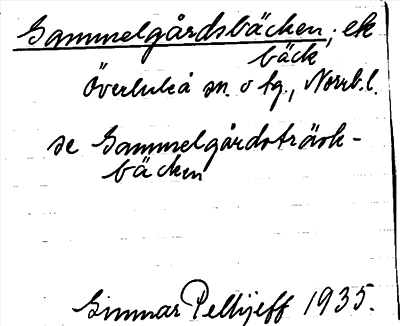 Gammelgårdsbäcken; ek
bäck
Överluleå sn. o tg., Norrb.l.
se Gammelgårdsträsk-
bäcken
Gunnar Pellijeff 1935.